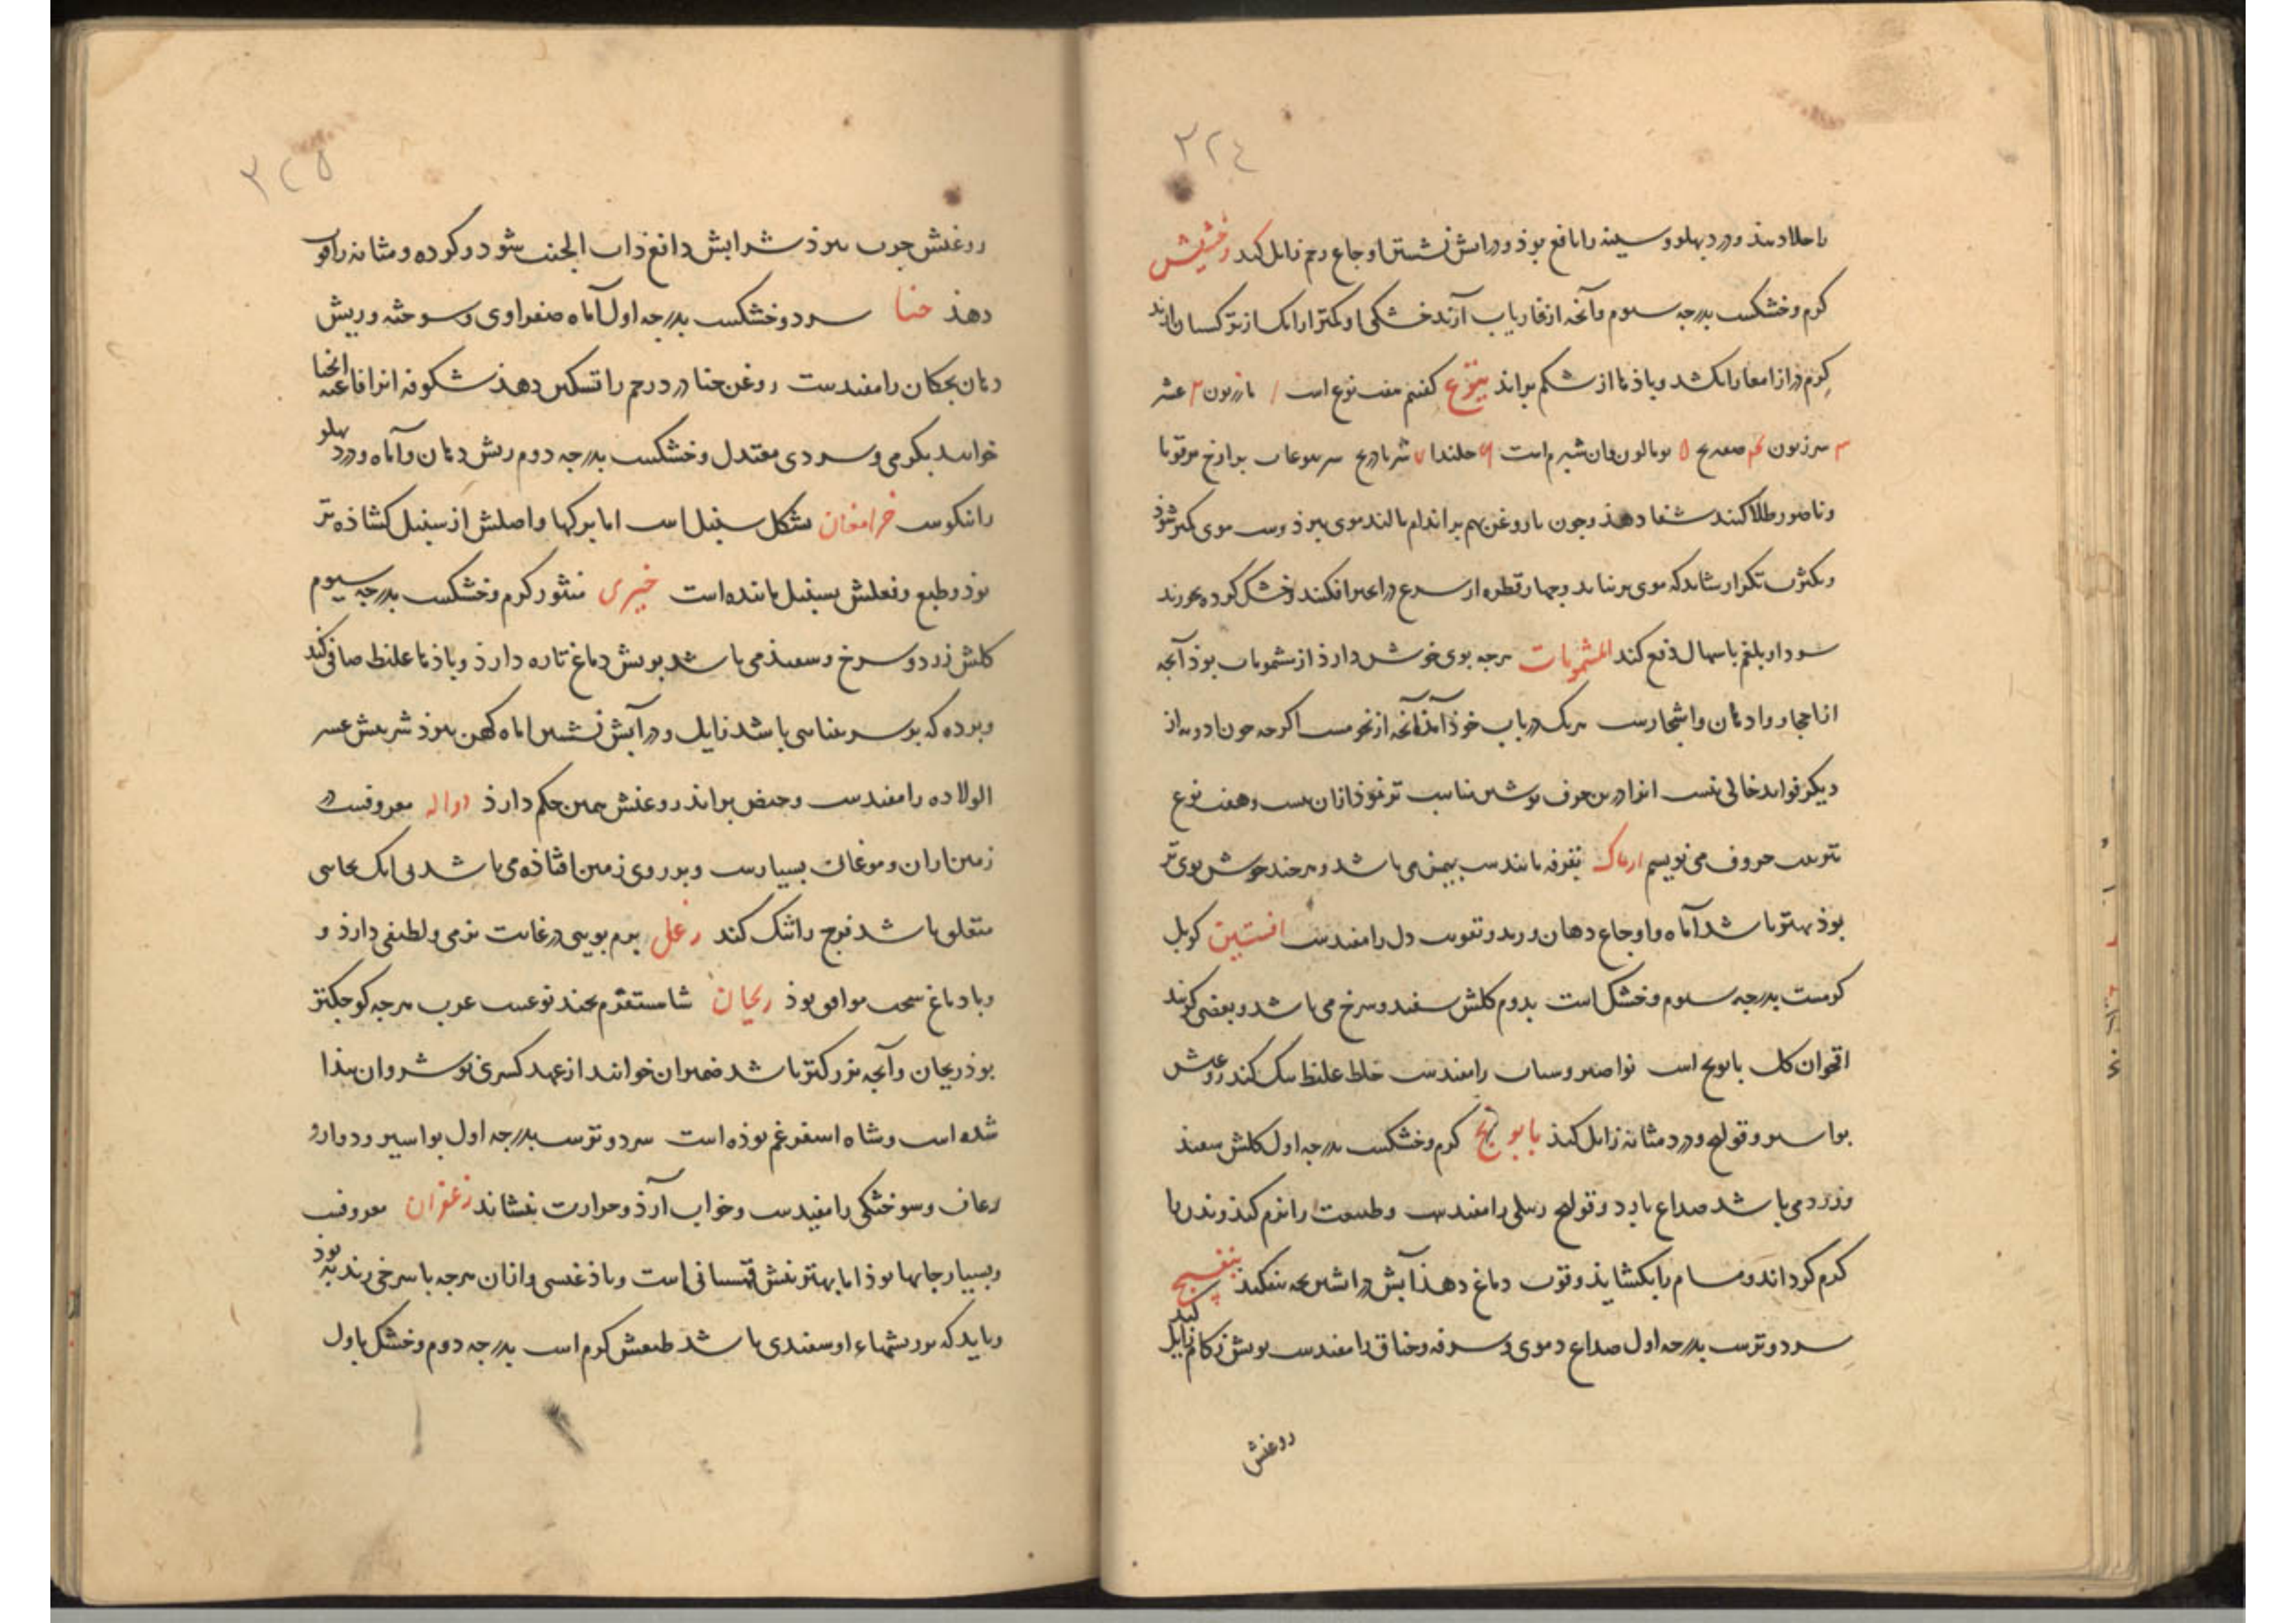 ٣٢٤
با جلا دهند و درد پهلو و سینه را نافع بوذ و در آبش نشستن اوجاع رحم زایل کند وخشیش
کرم و خشکست بدرجه سیوم و آنجه از فاریاب آرند خشکی او کمتر از آنک از ترکستان آرند
کرم دراز امعا را بکشد و باذها از شکم براند یتوع کفتیم هفت نوع است ۱ مازریون ۲ عشر
۳
و ناصور طلا کنند شفا دهذ و جون با روغن بهم بر اندام مالند موی ببرذ وست موی کمتر شوذ
و بکثرت تکرار شاید که موی برنیاید و جهار قطره از در انجیر افکنند و خشک کرده بخورند
سودا و بلغم باسهال دفع کند المشمومات هرجه بوی خوش دارد از مشمومات بوذ آنجه
از احجار و ادهان و اشجارست هریک در باب خوذ آمذ آنجه از نجومست اکرجه جون ادویه از
دیکر فواید خالی نیست انرا درین حرف نوشتن مناسب تر نموذ از آن بیست و هفت نوع
بترتیب حروف می نویسیم ارماک بقرفه مانندست بیمن می باشد و هرجند خوش بوی تر
بوذ بهتر باشد آماه و اوجاع دهان و تقویت دل را مفیدست افسنتین کویل
کرمست بدرجه سیوم و خشک است بدوم کلش سفید و سرخ می باشد و بعضی کویند
اقحوان کل بابونج است نواصیر و سبات را مفیدست خلط غلیظ سبک کند روغنش
بواسیر و قولنج و درد مثانه زایل کند بابونج کرم و خشکست بدرجه اول کلش سفید
و زرد می باشد صداع بارد و قولنج رملی را مفیدست و طبیعت را نرم کند و بدن را
کرم کرداند و مسام را بکشاید و قوت دماغ دهذ آبش را شین بجه بیفکند بنفسج
سرد و ترست بدرجه اول صداع دموی و سرفه و خناق را مفیدست بویش زکام زایل کند
روغنش
٣٢٥
روغنش جرب ببرذ شرابش دافع ذات الجنب شود و کرده و مثانه را قوت
دهذ حنا سرد و خشکست بدرجه اول آماه صفراوی و سوخته و ریش
دهان بجکان را مفیدست روغن حنا درد رحم را تسکین دهذ شکوفه انرا فاغیه الحنا
خوانند بکرمی و سردی معتدل و خشکست بدرجه دوم ریش دهان و آماه و درد پهلو
را نیکوست خرامغان بشکل سنبل است اما برکها و اصلش از سنبل کشاذه تر
بوذ و طبع و فعلش بسنبل ماننده است خیری منثور کرم و خشکست بدرجه سیوم
کلش زرد و سرخ و سفید می باشد بویش دماغ تازه دارد و باذهاء غلیظ صافی کند
و برده که بر باشد زایل و در آبش نشستن اماه کهن ببرذ شربتش عسر
الولاده را مفیدست و حیض براند روغنش همین حکم دارد دواله معروفست در
زمین اران و موغان بسیارست و بر روی زمین افتاذه می باشد بی آنک بجایی
متعلق باشد فرج را تنک کند رغل برم بویی در غایت نرمی و لطیفی دارد و
و با دماغ سخت موافق بوذ ریحان شامسفرم بجند نوعست عرب هرجه کوجکتر
بوذ ریحان و آنجه بزرکتر باشد ضمیران خوانند از عهد کسری نوشروان بیذا
شده است و شاه اسفرغم بوذه است سرد و ترست بدرجه اول بواسیر و دوار و
رعاف و سوختکی را مفیدست و خواب آرد و حرارت بنشاند زعفران معروفست
و بسیار جایها بوذ اما بهترینش قهستانی است و باذغیسی و از آن هرجه با سرخی زند به بوذ
و باید که بر ریشهاء او سفیدی باشد طبعش کرم است بدرجه دوم و خشک باول